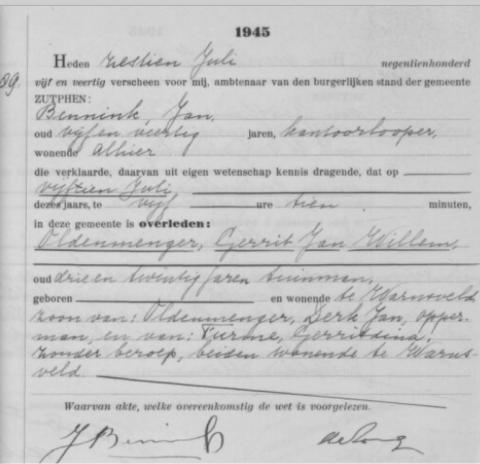 1945
Heden zestien Juli negentienhonderd
vijf en veertig verscheen voor mij, ambtenaar van den burgerlijken stand der gemeente
ZUTPHEN:
Bennink, Jan,
oud vijf en veertig jaren, kantoorlooper,
wonende alhier
die verklaarde, daarvan uit eigen wetenschap kennis dragende, dat op
vijftien Juli,
dezes jaars, te vijf ure tien minuten,
in deze gemeente is overleden:
Oldenmenger, Gerrit Jan Willem,
oud drie en twintig jaren tuinman,
geboren en wonende te Warnsveld
zoon van: Oldenmenger, Derk Jan, opper-
man, en van: Gerritdina,
zonder beroep, beiden wonende te Warns-
veld.
Waarvan akte, welke overeenkomstig de wet is voorgelezen.
J Bennink